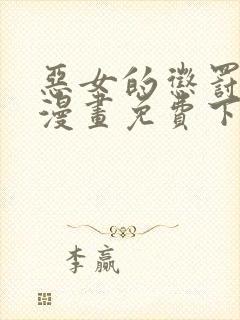 惡女的懲罰
漫畫免費下
李贏